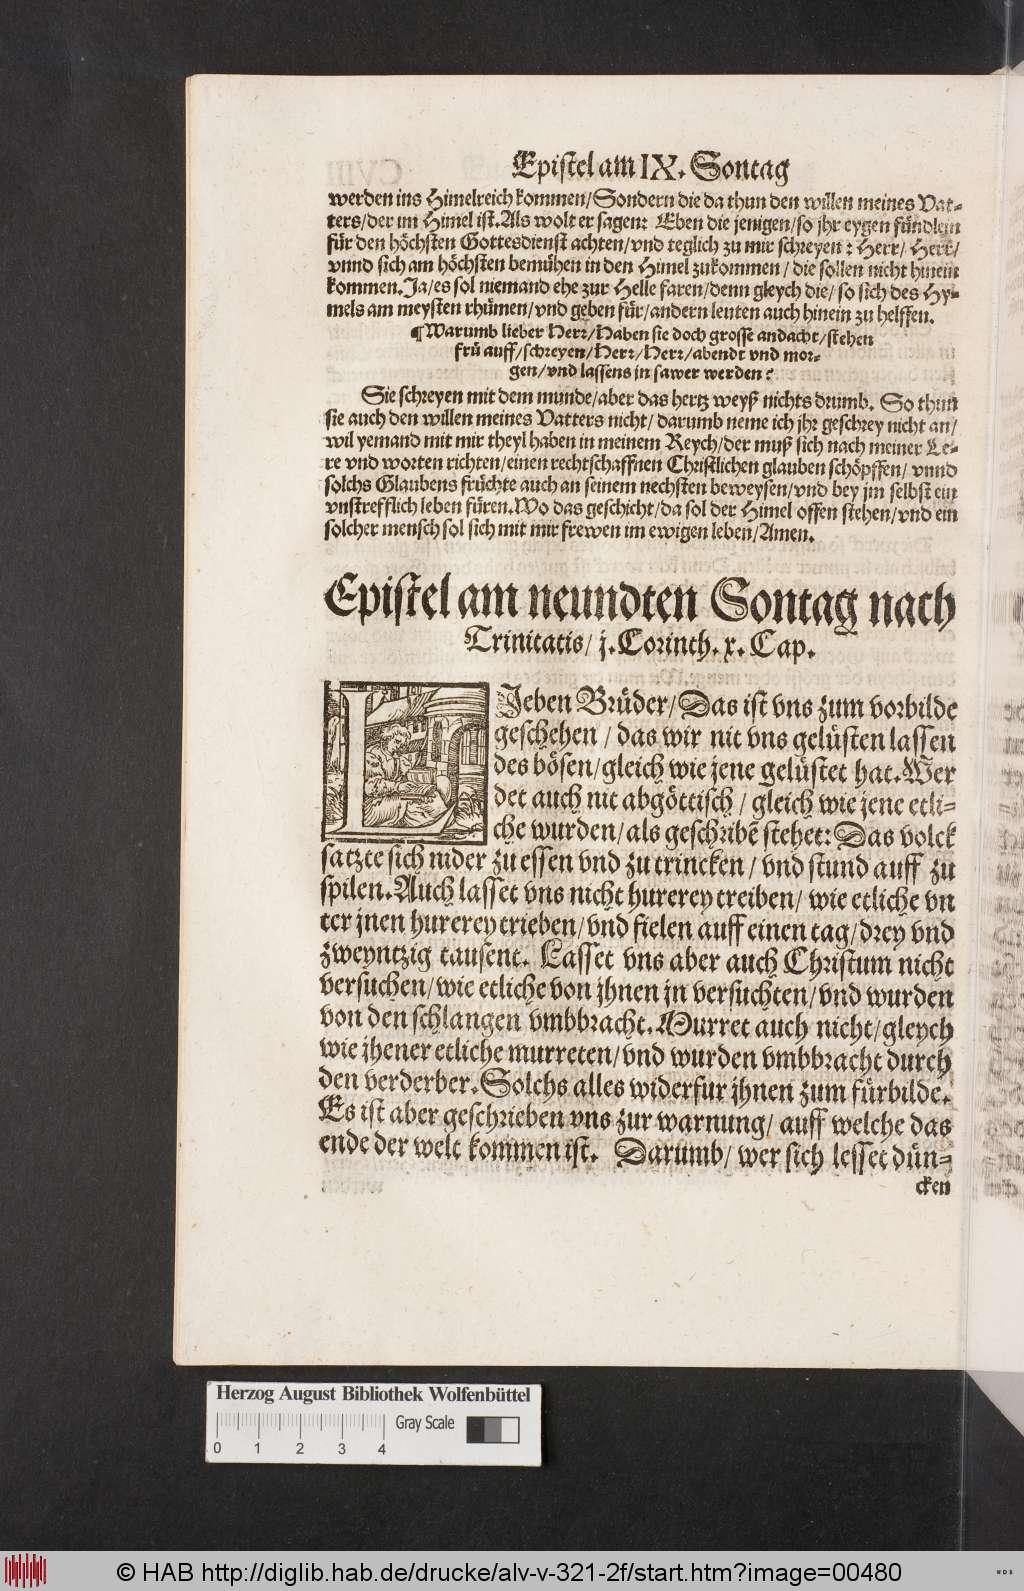 Epistel am IX. Sontag
werden ins Himelreich kommen/Sondern die da thun den willen meines Vat-
ters/der im Himel ist. Als wolt er sagen: Eben die jenigen/so jhr eygen fündlein
für den höchsten Gottesdienst achten/vnd teglich zu mir schreyen: Herr/ Herr/
vnnd sich am höchsten bemühen in den Himel zukommen/ die sollen nicht hinein
kommen. Ja/es sol niemand ehe zur Helle faren/denn gleych die/ so sich des Hy-
mels am meysten rhümen/vnd geben für/andern leuten auch hinein zu helffen.
¶ Warumb lieber Herr/Haben sie doch grosse andacht/stehen
frü auff/schreyen/Herr/Herr/abendt vnd mor-
gen/vnd lassens jn sawer werden?
Sie schreyen mit dem munde/aber das hertz weyß nichts drumb. So thun
sie auch den willen meines Vatters nicht/ darumb neme ich jhr geschrey nicht an/
wil yemand mit mir theyl haben in meinem Reych/der muß sich nach meiner Le-
re vnd worten richten/einen rechtschaffnen Christlichen glauben schöpffen/ vnnd
solchs Glaubens früchte auch an seinem nechsten beweysen/vnd bey jm selbst ein
vnstrefflich leben füren. Wo das geschicht/da sol der Himel offen stehen/vnd ein
solcher mensch sol sich mit mir frewen im ewigen leben/Amen.
Epistel am neundten Sontag nach
Trinitatis/ j. Corinth. x. Cap.
LJeben Brüder/Das ist vns zum vorbilde
geschehen/ das wir nit vns gelüsten lassen
des bösen/gleich wie jene gelüstet hat. Wer
det auch nit abgöttisch/ gleich wie jene etli-
che wurden/als geschribē stehet: Das volck
satzte sich nider zu essen vnd zu trincken/ vnd stund auff zu
spilen. Auch lasset vns nicht hurerey treiben/ wie etliche vn
ter jnen hurerey trieben/vnd fielen auff einen tag/drey vnd
zweyntzig tausent. Lasset vns aber auch Christum nicht
versuchen/wie etliche von jhnen jn versuchten/vnd wurden
von den schlangen vmbbracht. Murret auch nicht/gleych
wie jhener etliche murreten/vnd wurden vmbbracht durch
den verderber. Solchs alles widerfur jhnen zum fürbilde.
Es ist aber geschrieben vns zur warnung/ auff welche das
ende der welt kommen ist. Darumb/ wer sich lesset dün-
cken
Herzog August Bibliothek Wolfenbüttel
Gray Scale
0 1 2 3 4
© HAB http://diglib.hab.de/drucke/alv-v-321-2f/start.htm?image=00480